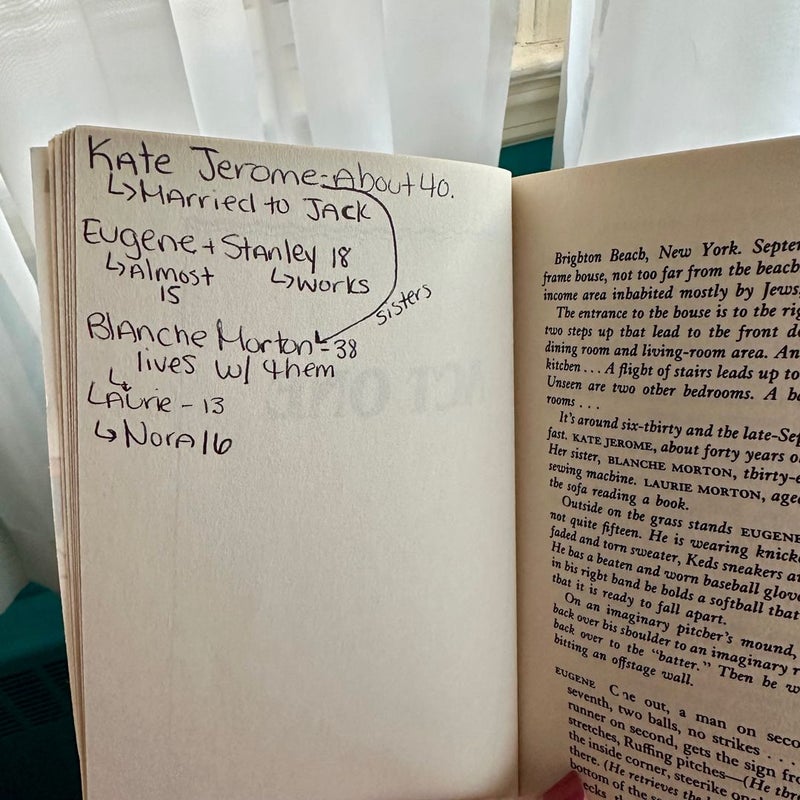 Kate Jerome-About 40.
↳Married to Jack
Eugene + Stanley 18
↳Almost 15
↳works
sisters
Blanche Morton-38
lives w/ them
↳Laurie-13
↳Nora 16
Brighton Beach, New York. Septe
frame house, not too far from the beach
income area inhabited mostly by Jews,
The entrance to the house is to the rig
two steps up that lead to the front d
dining room and living-room area. An
kitchen . . . A flight of stairs leads up to
Unseen are two other bedrooms. A b
rooms . . .
It's around six-thirty and the late-Sep
fast. KATE JEROME, about forty years o
Her sister, BLANCHE MORTON, thirty-e
sewing machine. LAURIE MORTON, aged
the sofa reading a book.
Outside on the grass stands EUGENE
not quite fifteen. He is wearing knick
faded and torn sweater, Keds sneakers a
He has a beaten and worn baseball glov
in his right hand he holds a softball that
that it is ready to fall apart.
On an imaginary pitcher's mound,
back over his shoulder to an imaginary r
back over to the "batter." Then he w
hitting an offstage wall.
EUGENE One out, a man on seco
seventh, two balls, no strikes . . .
runner on second, gets the sign fr
stretches, Ruffing pitches—(He thr
the inside corner, steerike on
there. (He retrieves the
bottom of the se